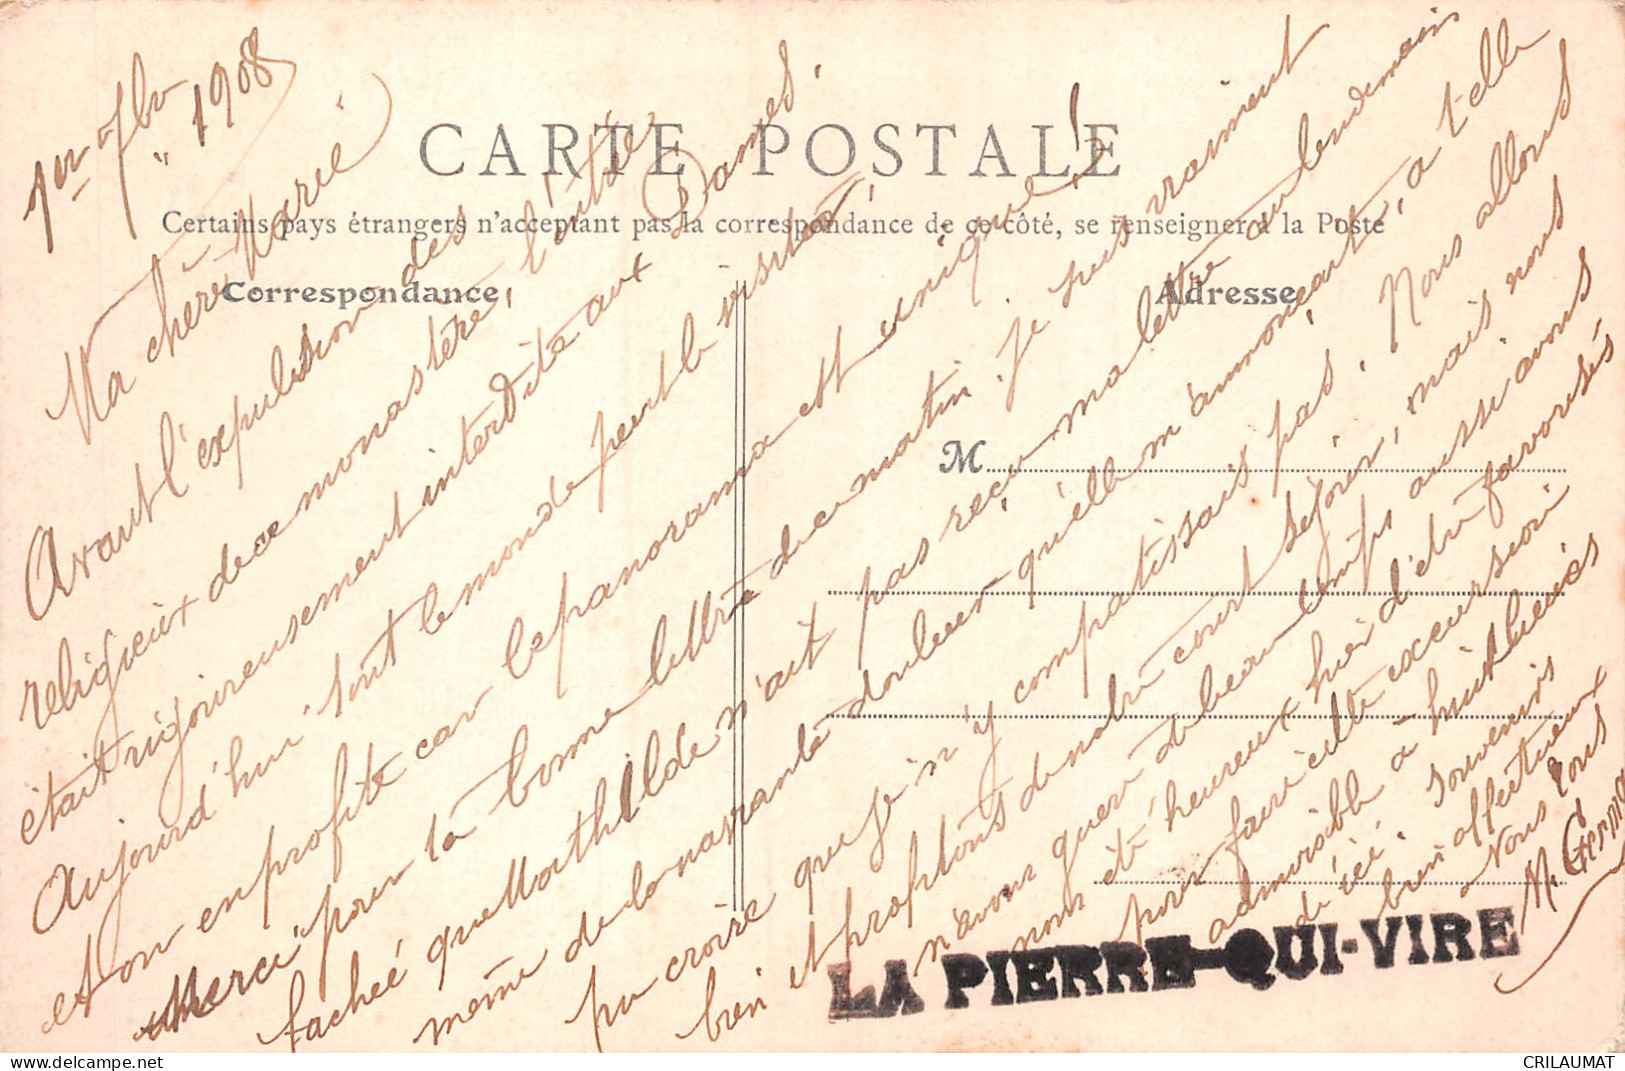 1er 7bre 1908
CARTE POSTALE
Certains pays étrangers n'acceptent pas la correspondance de ce côté, se renseigner à la Poste
Correspondance
Adresse
M
Ma chère Marie
Avant l'expulsion des
religieux de ce monastère, l'entrée
était rigoureusement interdite aux Dames.
Aujourd'hui tout le monde peut le visiter,
et on en profite car le panorama est unique!
Merci pour ta bonne lettre de ce matin. Je suis vraiment
fachée que Mathilde n'ait pas reçu ma lettre au lendemain
même de la navrante douleur qu'elle m'annonçait, a t-elle
pu croire que je n'y compatissais pas. Nous allons
bien et profitons de notre court séjour, mais nous
n'avons guère de beau temps aussi avons
nous été heureux hier d'être favorisés
pour faire cette excursion
admirable à huit lieues
d'ici. Souvenirs
bien affectueux
à vous tous
M. Germa
LA PIERRE-QUI-VIRE
CRILAUMAT